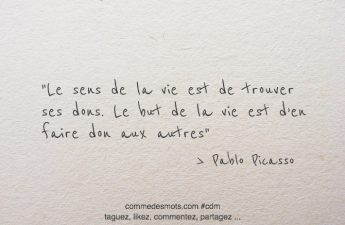 "Le sens de la vie est de trouver
ses dons. Le but de la vie est d'en
faire don aux autres"
> Pablo Picasso
commedesmots.com #cdm
taguez, likez, commentez, partagez ...